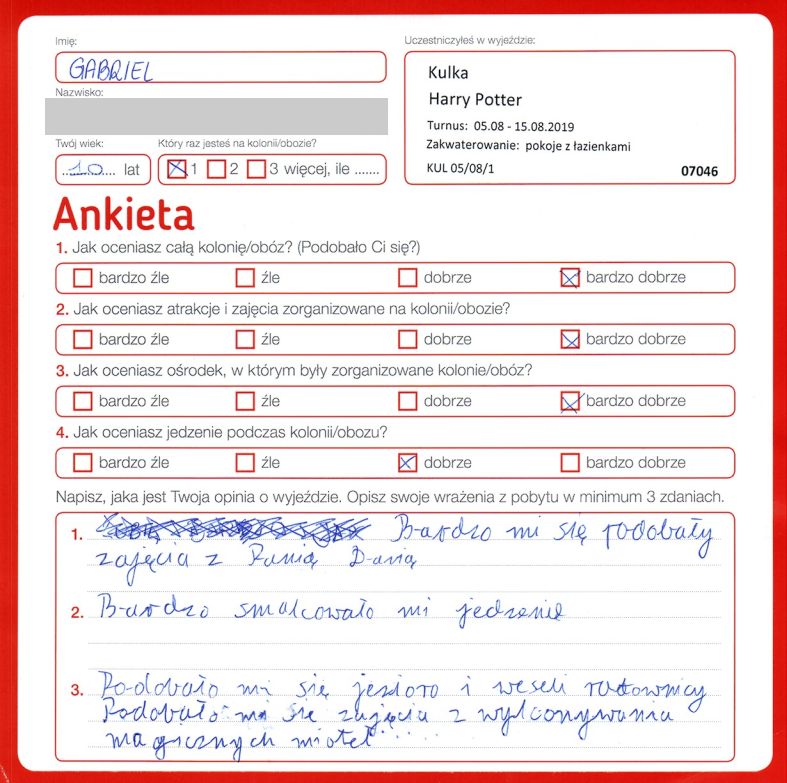 Imię:
GABRIEL
Nazwisko:
Twój wiek:
10 lat
Który raz jesteś na kolonii/obozie?
1 2 3 więcej, ile .......
Uczestniczyłeś w wyjeździe:
Kulka
Harry Potter
Turnus: 05.08 - 15.08.2019
Zakwaterowanie: pokoje z łazienkami
KUL 05/08/1 07046
Ankieta
1. Jak oceniasz całą kolonię/obóz? (Podobało Ci się?)
bardzo źle źle dobrze bardzo dobrze
2. Jak oceniasz atrakcje i zajęcia zorganizowane na kolonii/obozie?
bardzo źle źle dobrze bardzo dobrze
3. Jak oceniasz ośrodek, w którym były zorganizowane kolonie/obóz?
bardzo źle źle dobrze bardzo dobrze
4. Jak oceniasz jedzenie podczas kolonii/obozu?
bardzo źle źle dobrze bardzo dobrze
Napisz, jaka jest Twoja opinia o wyjeździe. Opisz swoje wrażenia z pobytu w minimum 3 zdaniach.
1. Bardzo mi się podobały
zajęcia z Panią
2. Bardzo smakowało mi jedzenie
3. Podobało mi się jezioro i weseli ratownicy
Podobało mi się zajęcia z wykonywania
magicznych mioteł